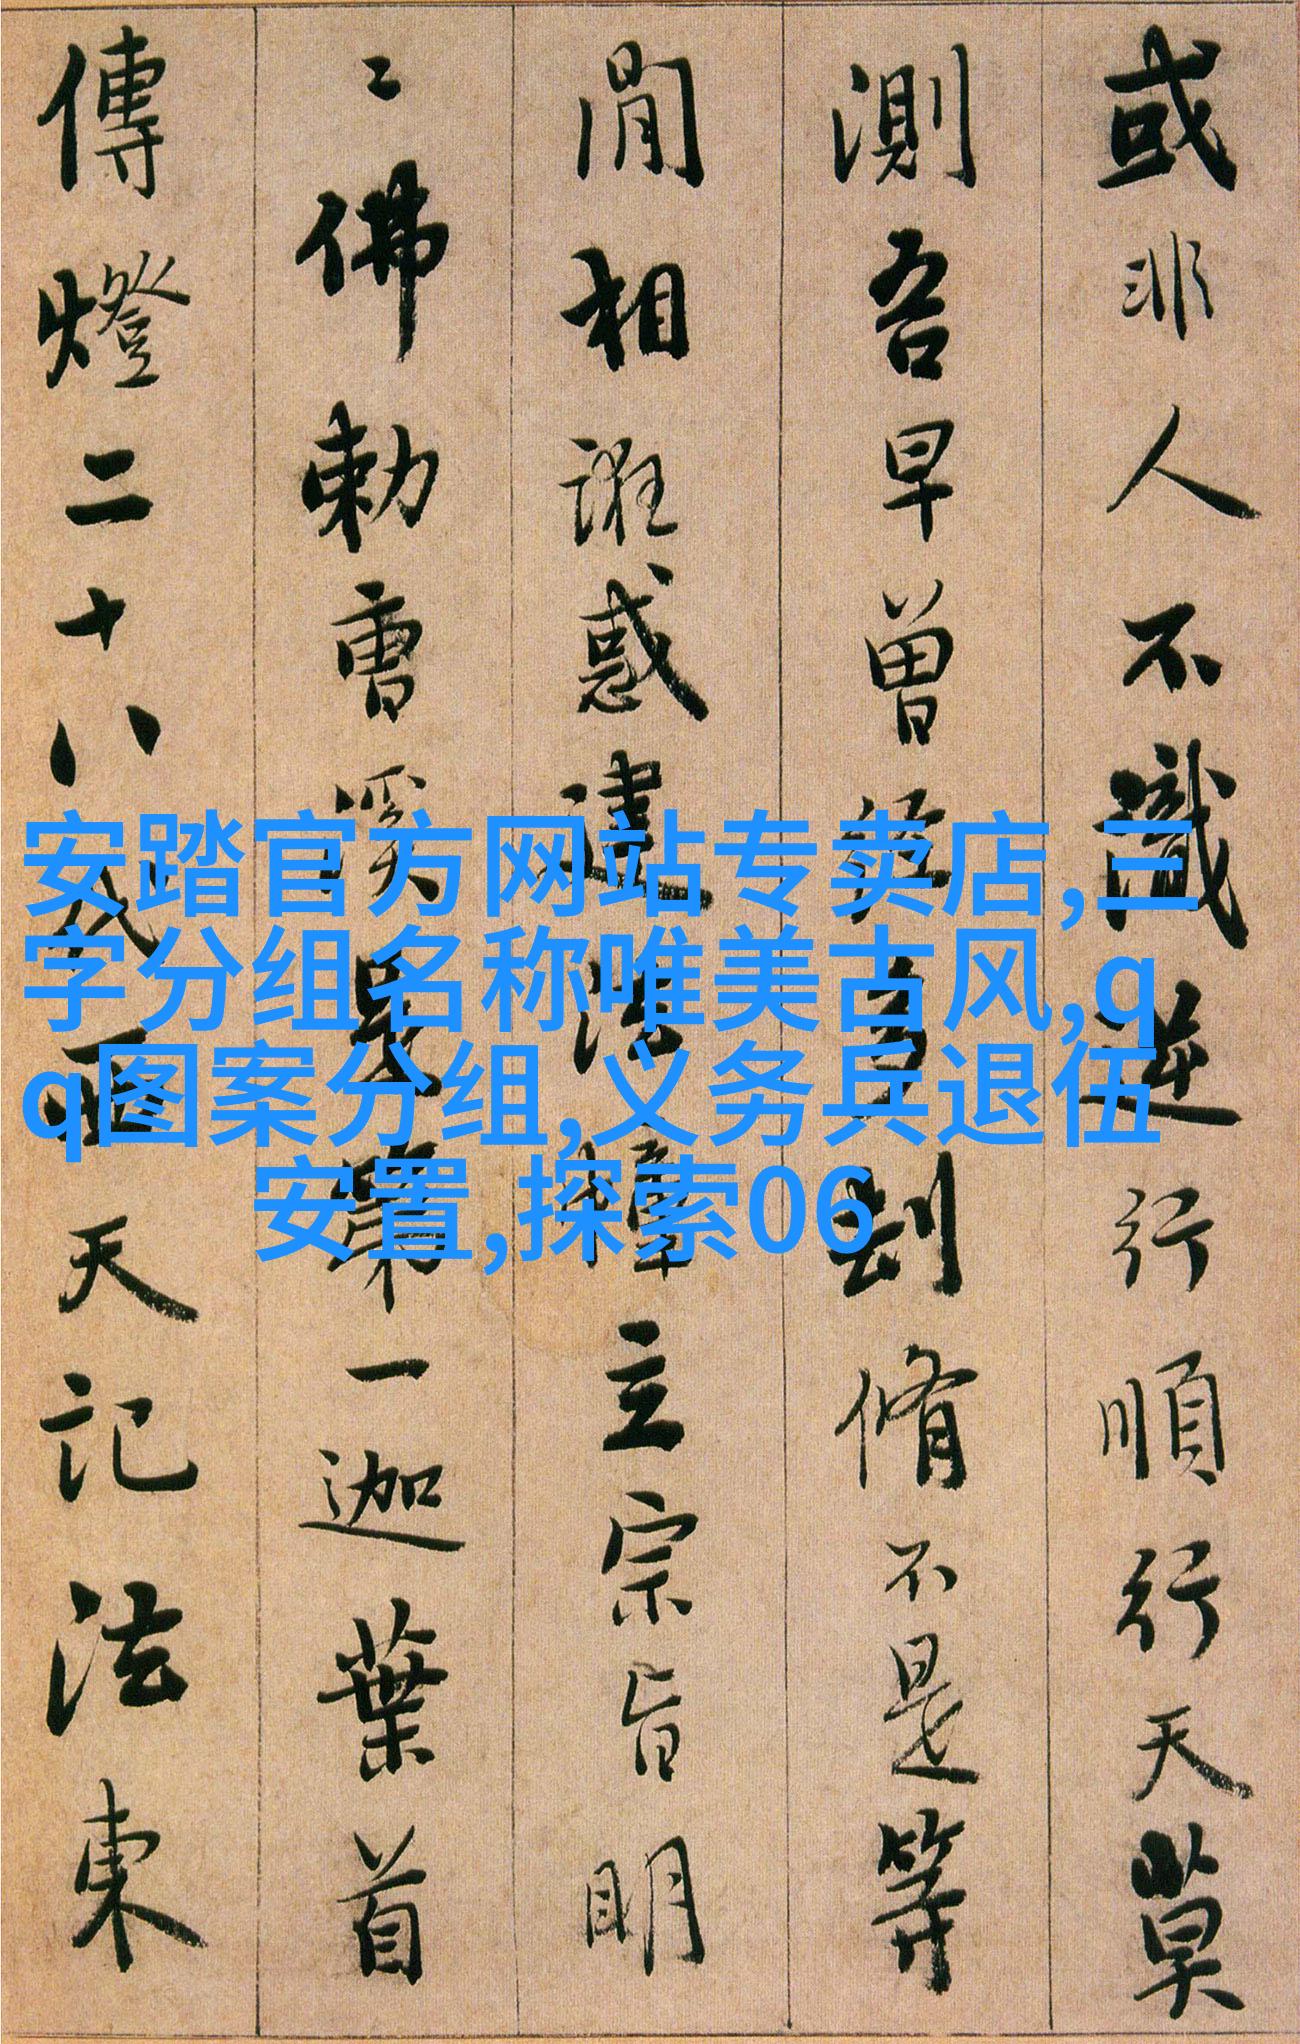 或非人不識逆行順行天莫
測吾早曾經多劫脩不是等
閒相誑惑建法幢立宗旨明
〻佛勅曹溪是第一迦葉首
傳燈二十八代西天記法東
安踏官方网站专卖店,三
字分组名称唯美古风,q
q图案分组,义务兵退伍
安置,探索06